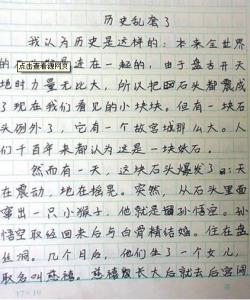 历史乱套了
我认为历史是这样的：本来全世界
的 是连在一起的，由于盘古开天
点击查看源网页
地时力量无比大，所以把 石头都震成
了现在我们看见的小块块，但有一块石
头例外了，它有一个故宫城那么大。人
们千百年来都认为这是一块妖石..
然而有一天，这块石头爆发了 ：天
在震动，地在摇晃。突然，从石头里面
窜出一只小猴子，他就是 孙悟空。孙
悟空取经回来后与白骨精结婚。住在盘
丝洞。几个月后，他们生了一个女儿，
取名叫慈禧。慈禧 长大后就去后宫闯